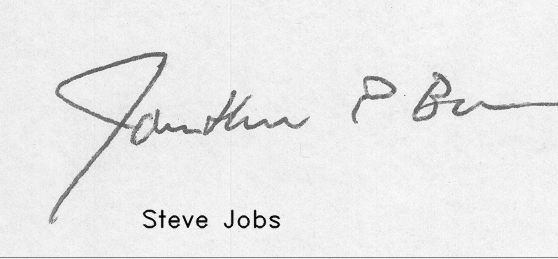 Jonathan P B
Steve Jobs